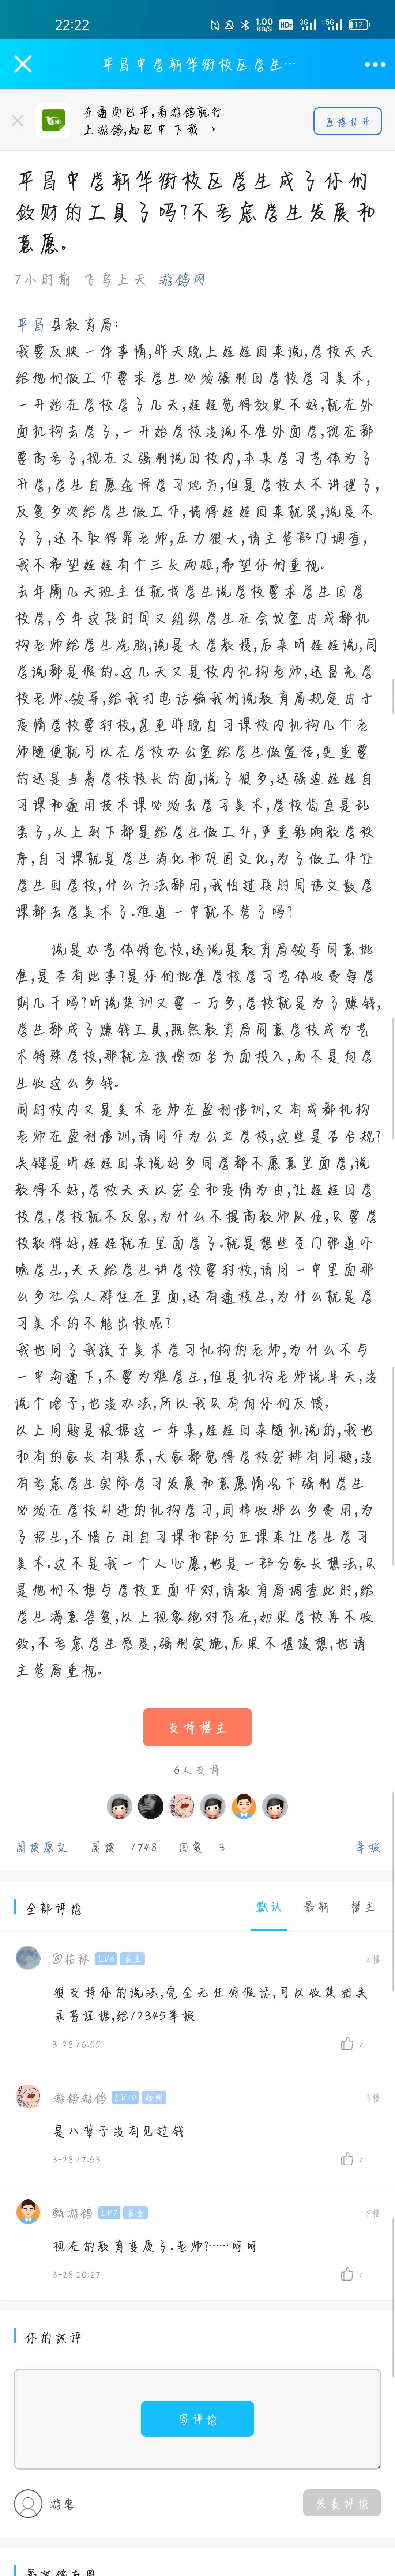 22:22
1.00
KB/S
HD2
3G
5G
12
平昌中学新华街校区学生…
在通南巴平,看游锣就行
上游锣,知巴中 下载→
直接打开
平昌中学新华街校区学生成了你们
敛财的工具了吗?不考虑学生发展和
意愿。
7小时前 飞鸟上天 游锣网
平昌县教育局:
我要反映一件事情,昨天晚上娃娃回来说,学校天天
给他们做工作要求学生必须强制回学校学习美术,
一开始在学校学了几天,娃娃觉得效果不好,就在外
面机构去学了,一开始学校没说不准外面学,现在都
要高考了,现在又强制说回校内,本来学习艺体为了
升学,学生自愿选择学习地方,但是学校太不讲理了,
反复多次给学生做工作,搞得娃娃回来就哭,说受不
了了,还不敢得罪老师,压力很大,请主管部门调查,
我不希望娃娃有个三长两短,希望你们重视。
去年隔几天班主任就找学生说学校要求学生回学
校学,今年这段时间又组织学生在会议室由成都机
构老师给学生洗脑,说是大学教授,后来听娃娃说,同
学说都是假的。这几天又是校内机构老师,还冒充学
校老师、领导,给我打电话骗我们说教育局规定由于
疫情学校要封校,甚至昨晚自习课校内机构几个老
师随便就可以在学校办公室给学生做宣传,更重要
的还是当着学校校长的面,说了很多,还强迫娃娃自
习课和通用技术课必须去学习美术,学校简直是乱
套了,从上到下都是给学生做工作,严重影响教学秩
序,自习课就是学生消化和巩固文化,为了做工作让
学生回学校,什么方法都用,我怕过段时间语文数学
课都去学美术了。难道一中就不管了吗?
说是办艺体特色校,还说是教育局领导同意批
准,是否有此事?是你们批准学校学习艺体收费每学
期几千吗?听说集训又要一万多,学校就是为了赚钱,
学生都成了赚钱工具,既然教育局同意学校成为艺
术特殊学校,那就应该增加各方面投入,而不是向学
生收这么多钱。
同时校内又是美术老师在盈利培训,又有成都机构
老师在盈利培训,请问作为公立学校,这些是否合规?
关键是听娃娃回来说好多同学都不愿意里面学,说
教得不好,学校天天以安全和疫情为由,让娃娃回学
校学,学校就不反思,为什么不提高教师队伍,只要学
校教得好,娃娃就在里面学了。就是想些歪门邪道吓
唬学生,天天给学生讲学校要封校,请问一中里面那
么多社会人群住在里面,还有通校生,为什么就是学
习美术的不能出校呢?
我也问了我孩子美术学习机构的老师,为什么不与
一中沟通下,不要为难学生,但是机构老师说半天,没
说个啥子,也没办法,所以我只有向你们反馈。
以上问题是根据这一年来,娃娃回来随机说的,我也
和有的家长有联系,大家都觉得学校安排有问题,没
有考虑学生实际学习发展和意愿情况下强制学生
必须在学校引进的机构学习,同样收那么多费用,为
了招生,不惜占用自习课和部分正课来让学生学习
美术。这不是我一个人心愿,也是一部分家长想法,只
是他们不想与学校正面作对,请教育局调查此时,给
学生满意答复,以上现象绝对存在,如果学校再不收
敛,不考虑学生感受,强制实施,后果不堪设想,也请
主管局重视。
支持楼主
6人支持
阅读原文 阅读 1748 回复 3 举报
全部评论 默认 最新 楼主
@柏林 LV6 2楼
很支持你的说法,完全无任何假话,可以收集相关
录音证据,给12345举报
3-28 16:55 1
游锣游锣 LV10 3楼
是八辈子没有见过钱
3-28 17:53 1
甄游锣 LV7 4楼
现在的教育变质了。老师?……呵呵
3-28 20:27 1
你的热评
写评论
游客 发表评论